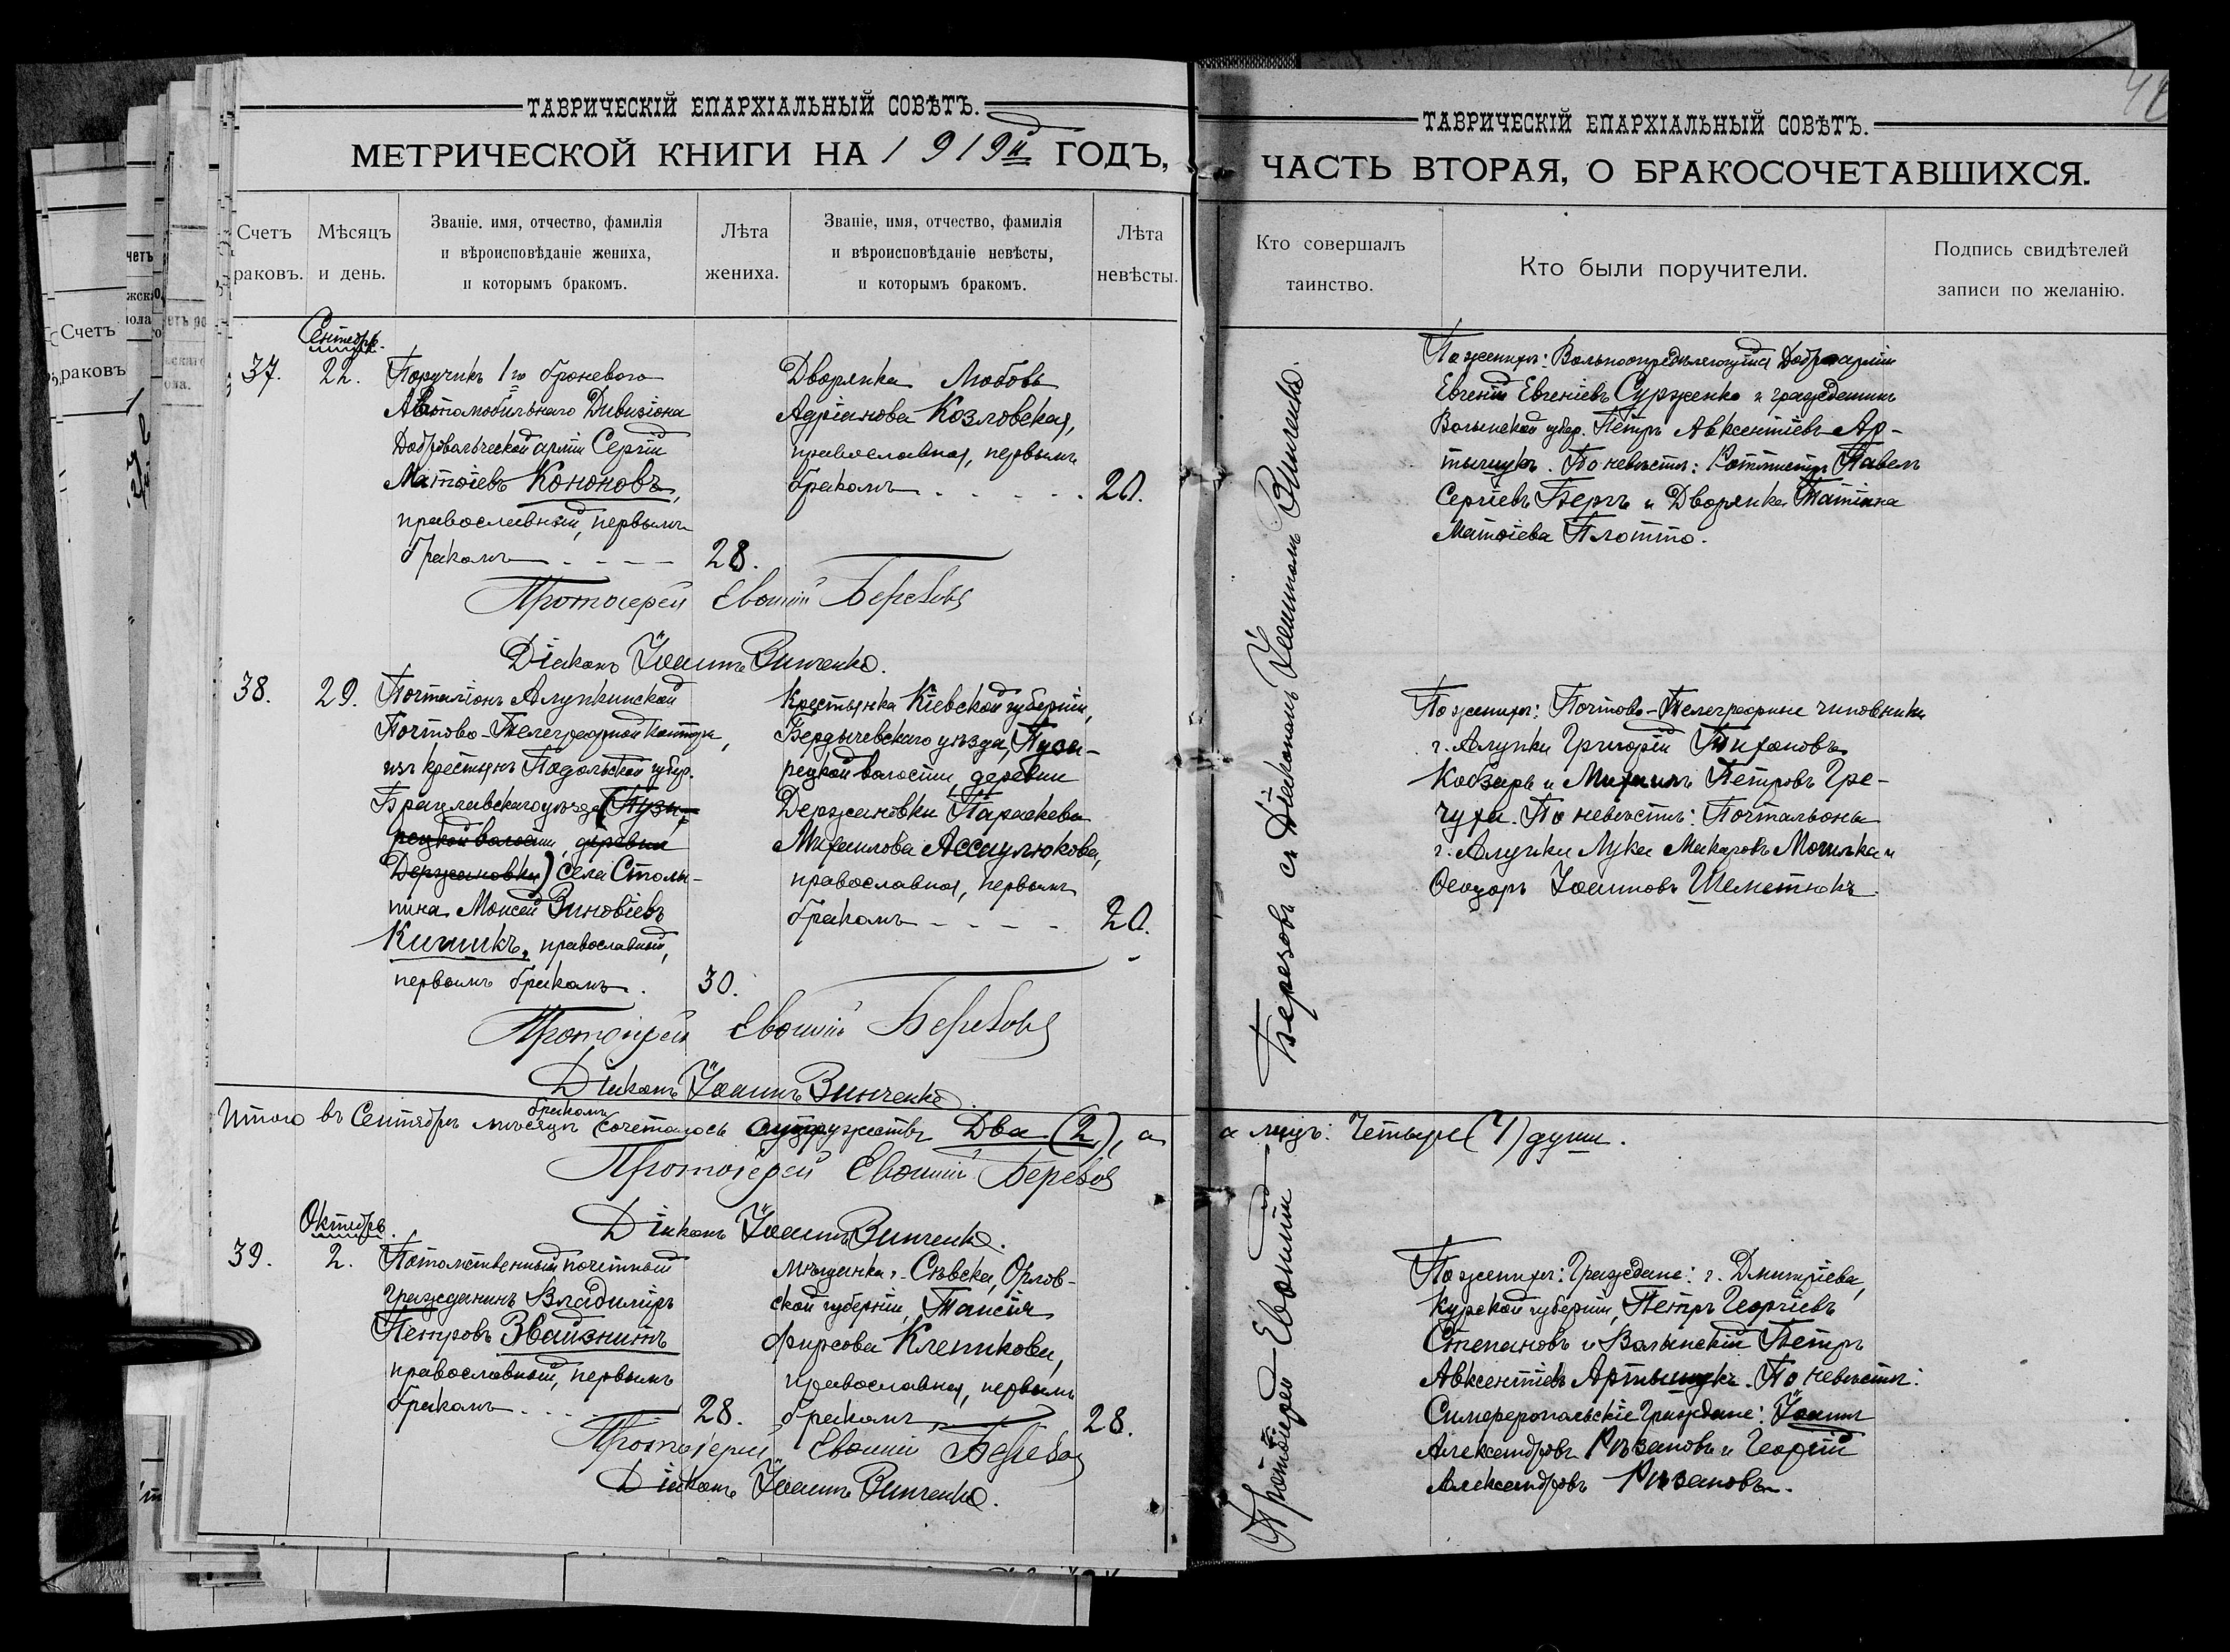 ТАВРИЧЕСКІЙ ЕПАРХІАЛЬНЫЙ СОВѢТЪ.
МЕТРИЧЕСКОЙ КНИГИ НА 1919й ГОДЪ,
Счетъ
раковъ.
Мѣсяцъ
и день.
Званіе. имя, отчество, фамилія
и вѣроисповѣданіе жениха,
и которымъ бракомъ.
Лѣта
жениха.
Званіе, имя, отчество, фамилія
и вѣроисповѣданіе невѣсты,
и которымъ бракомъ.
Лѣта
невѣсты.
Сентябрь.
37.
22.
Поручикъ 1го броневого
Автомобильнаго Дивизіона
Добровольческой арміи Сергій
Матѳіевъ Кононовъ,
православный, первымъ
бракомъ
28.
Дворянка Любовь
Адріанова Козловская,
православная, первымъ
бракомъ
20.
Протоіерей Евѳимій Березовъ
Діаконъ Іоаннъ Винченко.
38.
29.
Почталіонъ Алупкинской
Почтово-Телеграфной Конторы,
изъ крестьянъ Подольской губер.
Брацлавскаго уѣзда (Пузы-
рецкой волости, деревни
Держановки) села Столы-
пина Моисей Зиновіевъ
Кичикъ, православный,
первымъ бракомъ.
30.
Крестьянка Кіевской губерніи,
Бердичевскаго уѣзда, Пузы-
рецкой волости, деревни
Держановки Параскева
Михаилова Ассаулюкова,
православная, первымъ
бракомъ
20.
Протоіерей Евѳимій Березовъ
Діаконъ Іоаннъ Винченко.
Итого въ Сентябрѣ мѣсяцѣ бракомъ сочеталось супружествъ Два (2), а
Протоіерей Евѳимій Березовъ
Діаконъ Іоаннъ Винченко.
Октябрь.
39.
2.
Потомственный почетный
гражданинъ Владимиръ
Петровъ Звайзнитъ
православный, первымъ
бракомъ
28.
Мѣщанка г. Сѣвска, Орлов-
ской губерніи, Таисія
Фирсова Клепикова,
православная, первымъ
бракомъ
28.
Протоіерей Евѳимій Березовъ
Діаконъ Іоаннъ Винченко.
ТАВРИЧЕСКІЙ ЕПАРХІАЛЬНЫЙ СОВѢТЪ.
ЧАСТЬ ВТОРАЯ, О БРАКОСОЧЕТАВШИХСЯ.
Кто совершалъ
таинство.
Кто были поручители.
Подпись свидѣтелей
записи по желанію.
Протоіерей Евѳимій Березовъ съ Діакономъ Іоанномъ Винченко.
По женихѣ: Вольноопредѣляющійся Добр. арміи
Евгеній Евгеніевъ Сурженко и гражданинъ
Волынской губер. Петръ Авксентіевъ Ар-
тыщукъ. По невѣстѣ: Ротмистръ Павелъ
Сергіевъ Бергъ и Дворянка Татіана
Матѳіева Плотто.
По женихѣ: Почтово-Телеграфные чиновники
г. Алупки Григорій Тихановъ
Кобзарь и Михаилъ Петровъ Гре-
чуха. По невѣстѣ: Почтальоны
г. Алупки Лука Макаровъ Могилка и
Ѳеодоръ Іоанновъ Шеметюкъ.
а лицъ: Четыре (4) души.
По женихѣ: Граждане: г. Дмитріева,
Курской губерніи, Петръ Георгіевъ
Степановъ и Волынскій Петръ
Авксентіевъ Артыщукъ. По невѣстѣ:
Симферопольскіе Граждане: Іоаннъ
Александровъ Рѣзановъ и Георгій
Александровъ Рѣзановъ.